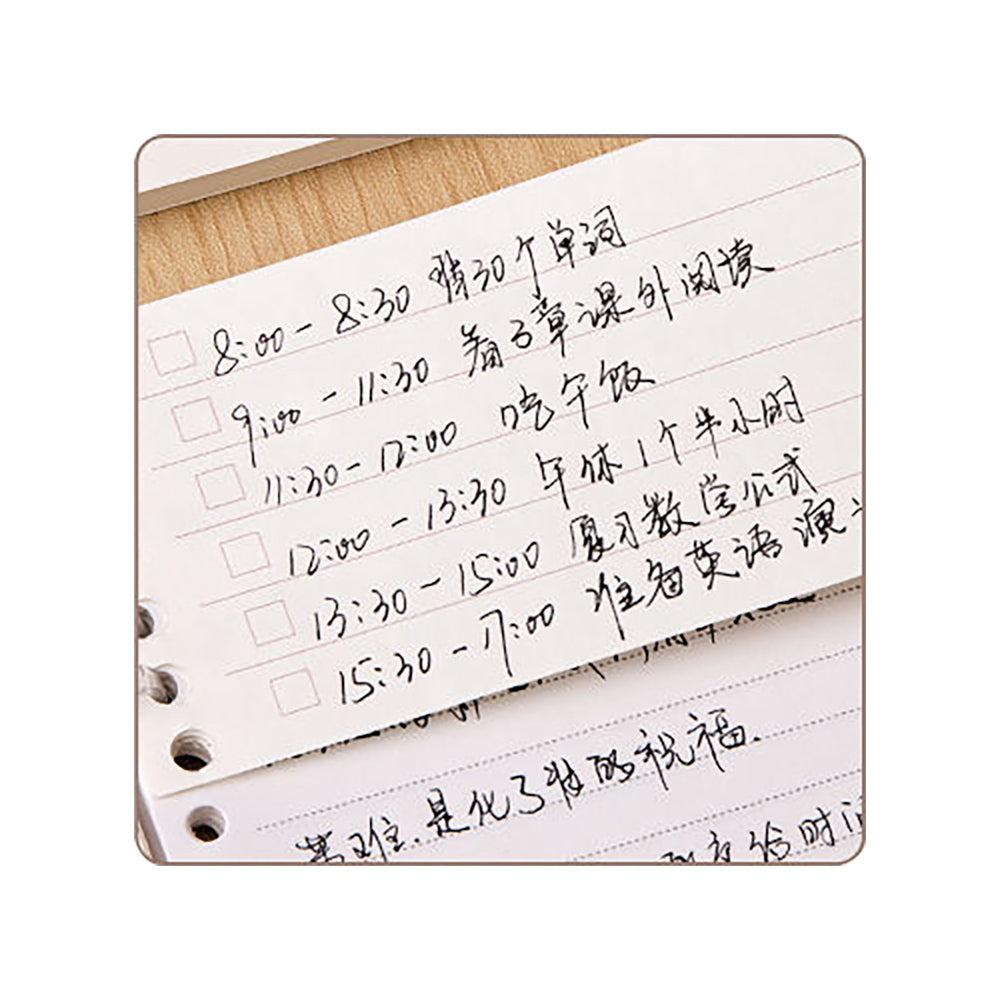 8:00-8:30 背30个单词
9:00-11:30 看3章课外阅读
11:30-12:00 吃午饭
12:00-13:30 午休1个半小时
13:30-15:00 复习数学公式
15:30-17:00 准备英语演
苦难.是化了妆的祝福.
给时间